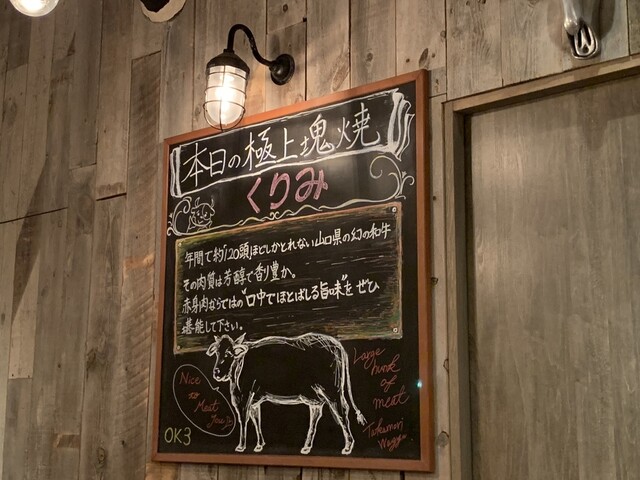 本日の極上塊焼
くりみ
年間で約120頭ほどしかとれない山口県の幻の和牛
その肉質は芳醇で香り豊か。
赤身肉ならではの"口中でほとばしる旨味"をぜひ
堪能して下さい。
Nice
to
Meat
You
Large
hunk
of
meat
OK3